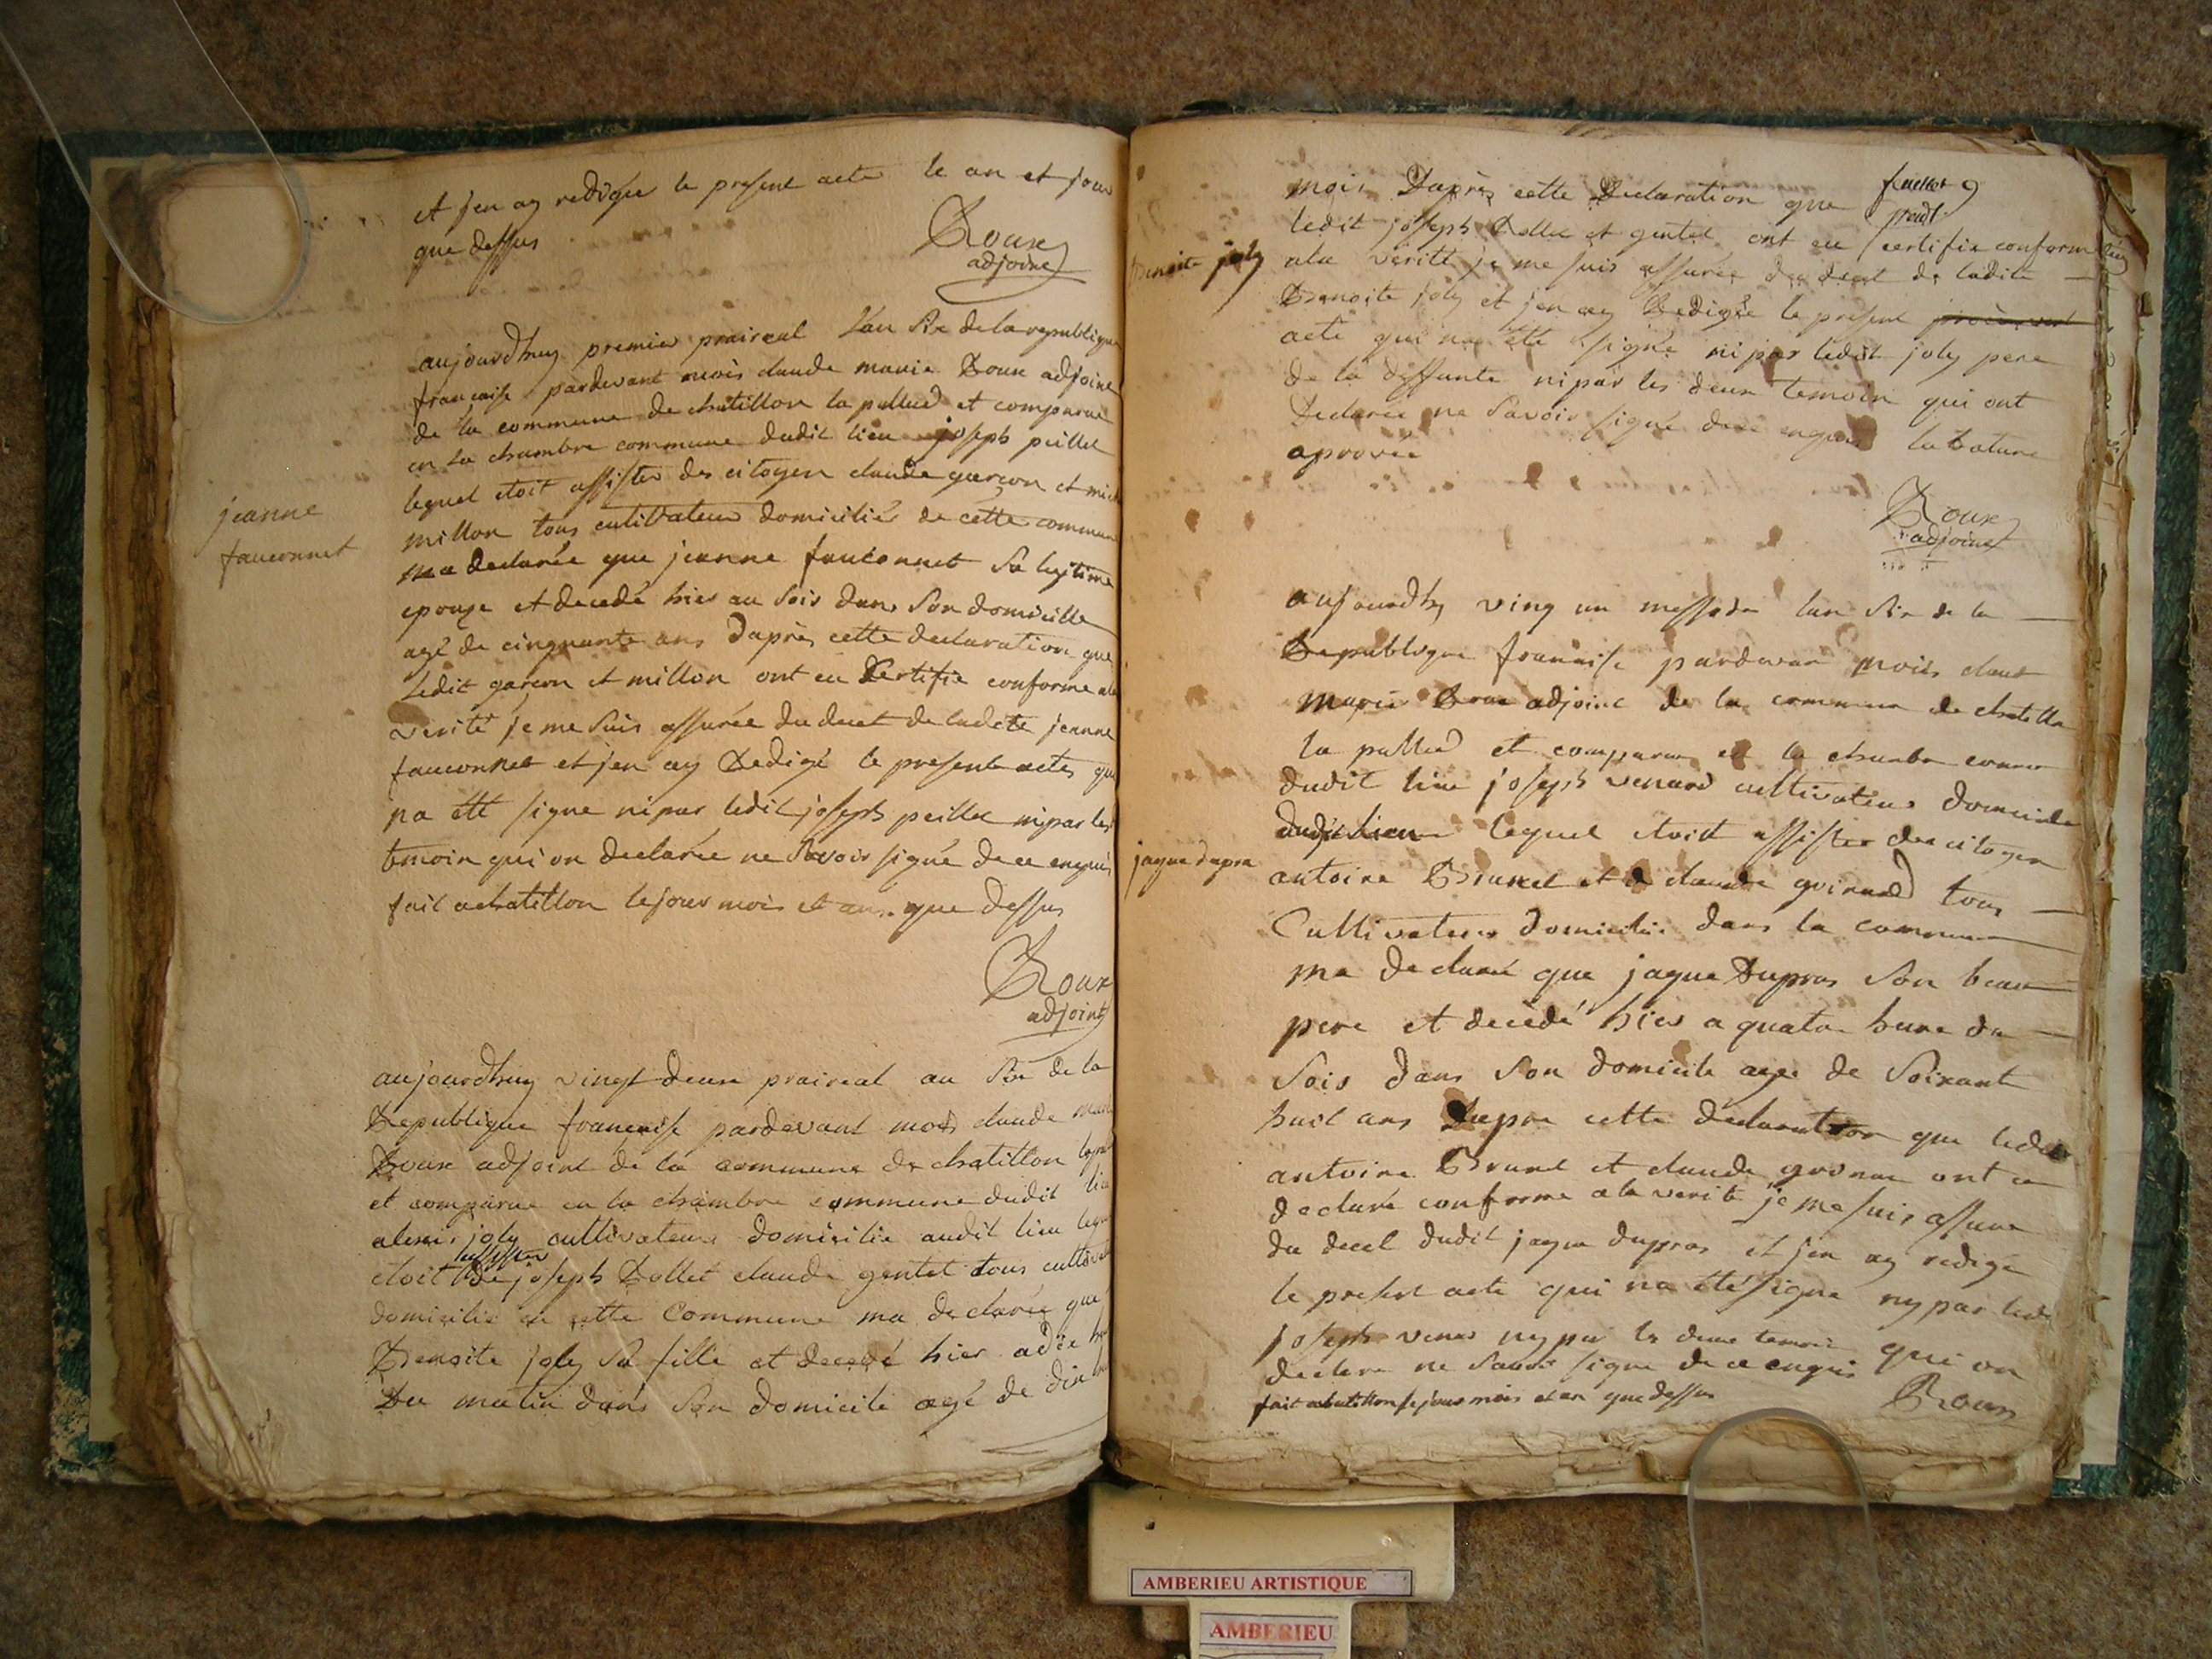 et jen ay redigée le present acte le an et jour
que dessus
Roux
adjoint
aujourdhuy premier praireal Lan Six de la republique
francaise pardevant mois claude marie Roux adjoint
de la commune de chatillon la pallud et comparue
en La chambre commune dudit lieu joseph peillet
lequel etoit assister des citoyen claude garcon et
jeanne
fauconnet
millon tous cultivateur domiciliés de cette commune
ma declarée que jeanne fauconnet Sa legitime
epouse et decedé hier au Soir dans Son domicille
agé de cinquante ans Daprès cette declaration que
Ledit garcon et millon ont eu Certifie conforme ala
verité je me Suis assurée du decet de ladete jeanne
fauconnet et jen ay Redigé le present actes qui
na été signe ni par ledit joseph peillet ni par les
temoin qui on declarée ne Savoir signé de ce enquis
fait achatillon le jour mois et ans que dessus
Roux
adjoint
aujourdhuy vingt deux praireal an Six de la
Republique francaise pardevant mois claude marie
Roux adjoint de la commune de chatillon
et comparue en la chambre commune dudit lieu
alexis joly cultivateur domicilié audit lieu lequel
assister
etoit de joseph Rollet claude gentet tous
domicilié en cette Commune ma declarée que
Benoite joly Sa fille et decedé hier adix
Du matin dans Son domicile agé de dix
feuillet 9
mois Daprès cette Declaration que
ledit joseph Rollet et gentet ont eu certifie conforme
benoite joly
ala verité je me suis assurée du decet de ladite
Benoite joly et jen ay Redigée le present
acte qui na été signé ni par ledit joly pere
de la deffunte ni par les deux temoin qui ont
Declarée ne Savoir signé de ce enquis la Rature
aprovée
Roux
adjoint
aujourdhy ving un messidor lan Six de la
Republique francaise pardevan mois claud
Marie Roux adjoint de la commune de chatillo
la pallud et comparue en la chambre comun
dudit lieu joseph venard cultivateur domicile
dudit lieu lequel etoit assister des citoyen
jaque dupra
antoine Brunet et de claude guinard tous
Cultivateur domicilié dans la commun
ma declaré que jaque Dupras Son beau
pere et decedé hier a quatre hure du
Soir dans Son domicile age de Soixant
huit ans Dapre cette declaration que ledit
antoine Brunet et claude ont
declaré conforme ala verité je me suis assure
du decet dudit jaque dupras et jen ay redige
le present acte qui na été signe ny par ledi
joseph venar ny par les deux temoin qui on
declare ne Savoir signe de ce enquis
fait achatillon le jour mois et an que dessus
Roux
AMBERIEU ARTISTIQUE
AMBERIEU